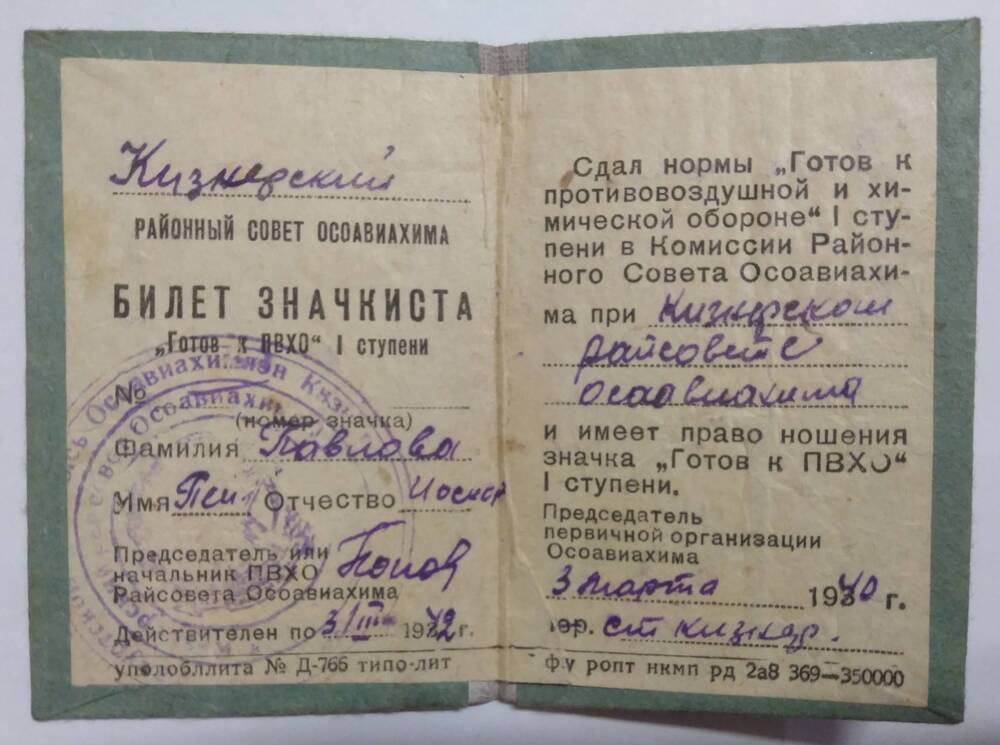 Кизнерский
РАЙОННЫЙ СОВЕТ ОСОАВИАХИМА
БИЛЕТ ЗНАЧКИСТА
„Готов к ПВХО“ I ступени
№
(номер значка)
Фамилия Павлова
Имя Отчество
Председатель или
начальник ПВХО Попов
Райсовета Осоавиахима
Действителен по 3/III 1942 г.
уполобллита № Д-766 типо-лит
Сдал нормы „Готов к
противовоздушной и хи-
мической обороне“ I сту-
пени в Комиссии Район-
ного Совета Осоавиахи-
ма при Кизнерском
райсовете
осоавиахима
и имеет право ношения
значка „Готов к ПВХО“
I ступени.
Председатель
первичной организации
Осоавиахима
3 марта 1940 г.
гор. ст кизнер.
ф-у ропт нкмп рд 2а8 369—350000